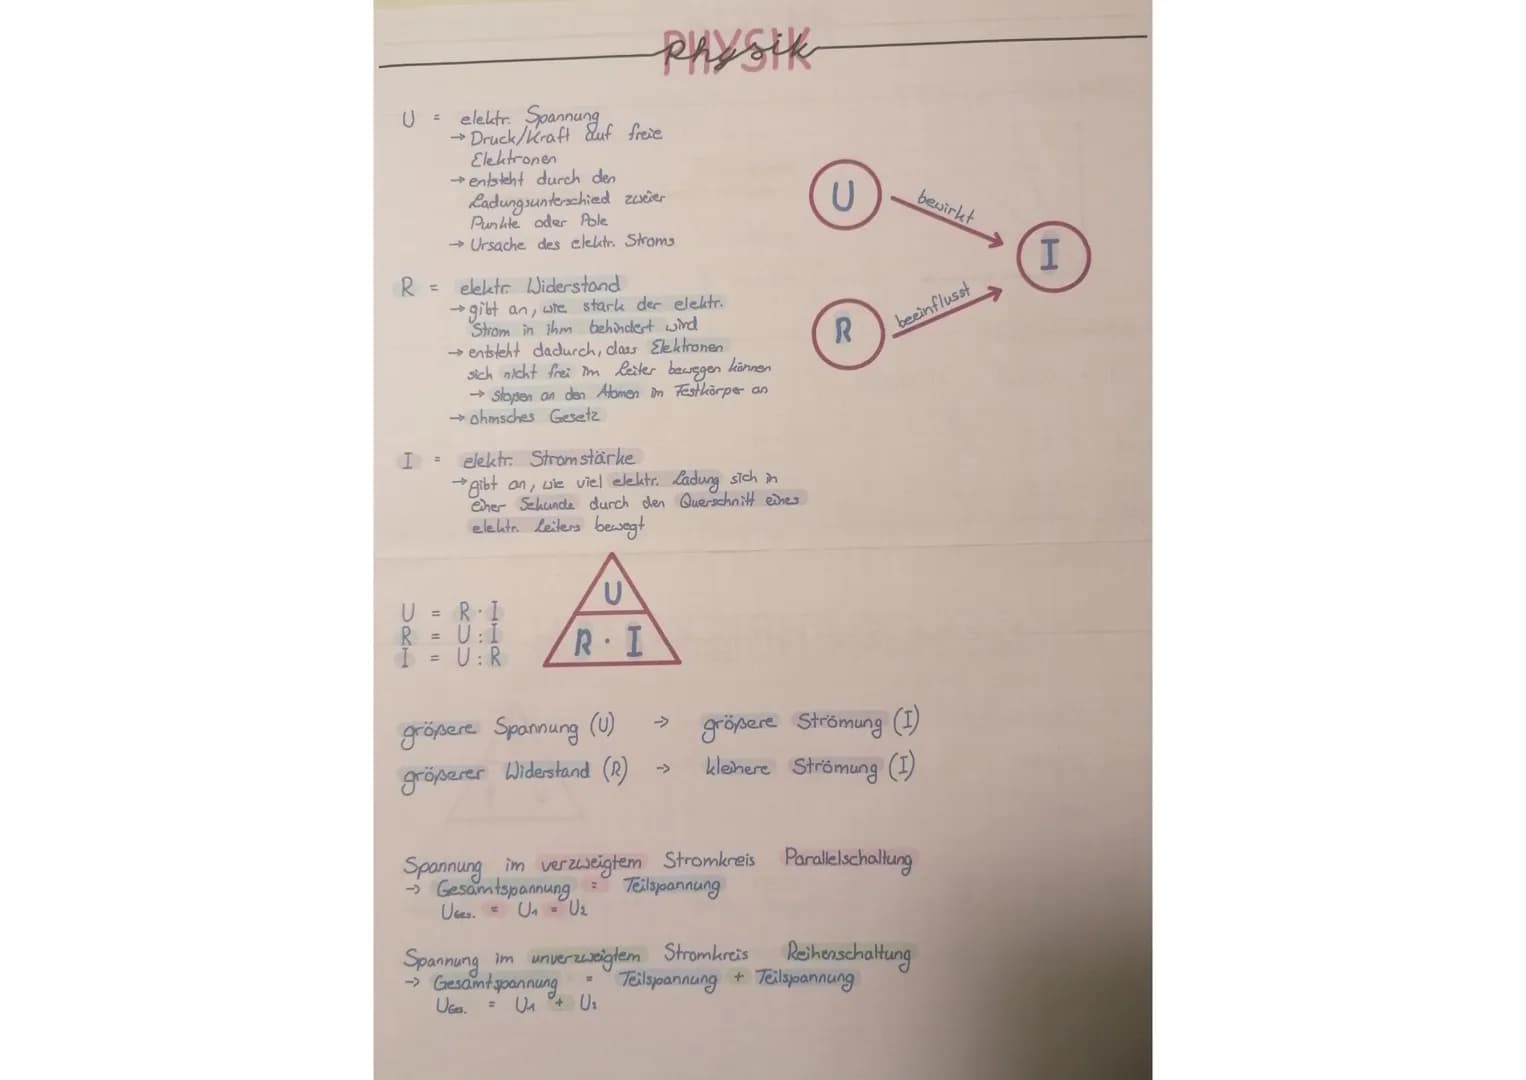 PHYSIK
Physik
U = elektr. Spannung
→ Druck/Kraft auf freie
Elektronen
→ entsteht durch den
Ladungsunterschied zweier
Punkte oder Pole
→ Ursache des elektr. Stroms
U bewirkt I
R beeinflusst
R = elektr. Widerstand
→ gibt an, wie stark der elektr.
Strom in ihm behindert wird
→ entsteht dadurch, dass Elektronen
sich nicht frei im Leiter bewegen können
→ stoßen an den Atomen im Festkörper an
→ ohmsches Gesetz
I = elektr. Stromstärke
→ gibt an, wie viel elektr. Ladung sich in
einer Sekunde durch den Querschnitt eines
elektr. Leiters bewegt
U = R · I
R = U : I
I = U : R
U
R · I
größere Spannung (U) → größere Strömung (I)
größerer Widerstand (R) → kleinere Strömung (I)
Spannung im verzweigtem Stromkreis Parallelschaltung
→ Gesamtspannung = Teilspannung
UGes. = U1 = U2
Spannung im unverzweigtem Stromkreis Reihenschaltung
→ Gesamtspannung = Teilspannung + Teilspannung
UGes. = U1 + U2